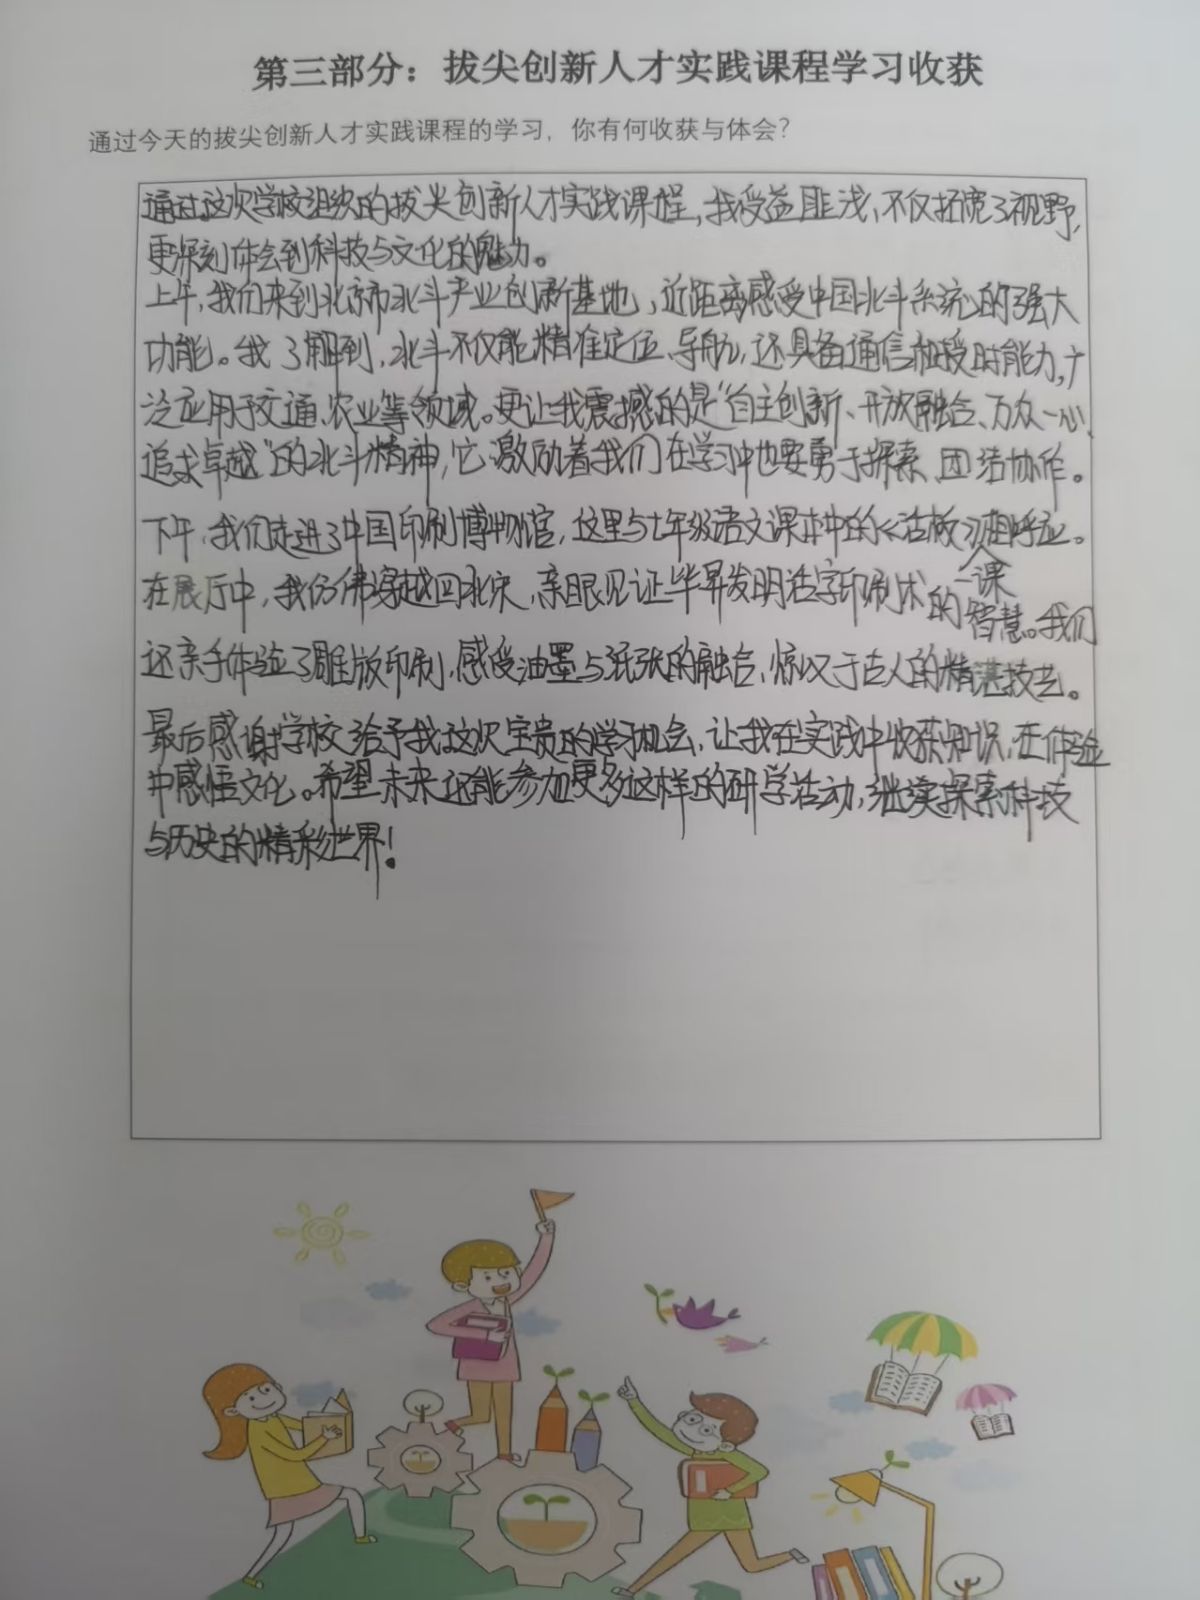 第三部分：拔尖创新人才实践课程学习收获
通过今天的拔尖创新人才实践课程的学习，你有何收获与体会？
通过这次学校组织的拔尖创新人才实践课程，我受益匪浅，不仅拓宽了视野，
更深刻体会到科技与文化的魅力。
上午，我们来到北京市北斗产业创新基地，近距离感受中国北斗系统的强大
功能。我了解到，北斗不仅能精准定位、导航，还具备通信和授时能力，广
泛应用于交通、农业等领域。更让我震撼的是“自主创新、开放融合、万众一心、
追求卓越”的北斗精神，它激励着我们在学习中也要勇于探索、团结协作。
下午，我们走进了中国印刷博物馆，这里与七年级语文课本中的《活板》一课相呼应。
在展厅中，我仿佛穿越回北宋，亲眼见证毕昇发明活字印刷术的智慧。我们
还亲手体验了雕版印刷，感受油墨与纸张的融合，惊叹于古人的精湛技艺。
最后感谢学校给予我这次宝贵的学习机会，让我在实践中收获知识，在体验
中感悟文化。希望未来还能参加更多这样的研学活动，继续探索科技
与历史的精彩世界！